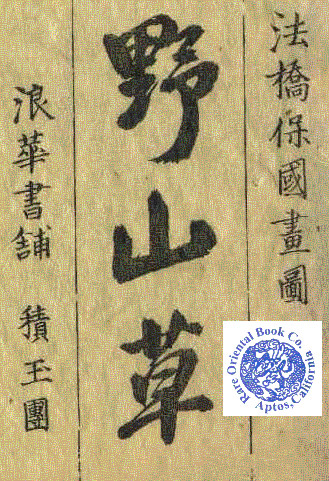 法橋保國畫圖
野山草
浪華書舗 積玉圃
Rare Oriental Book Co.,
Aptos, California